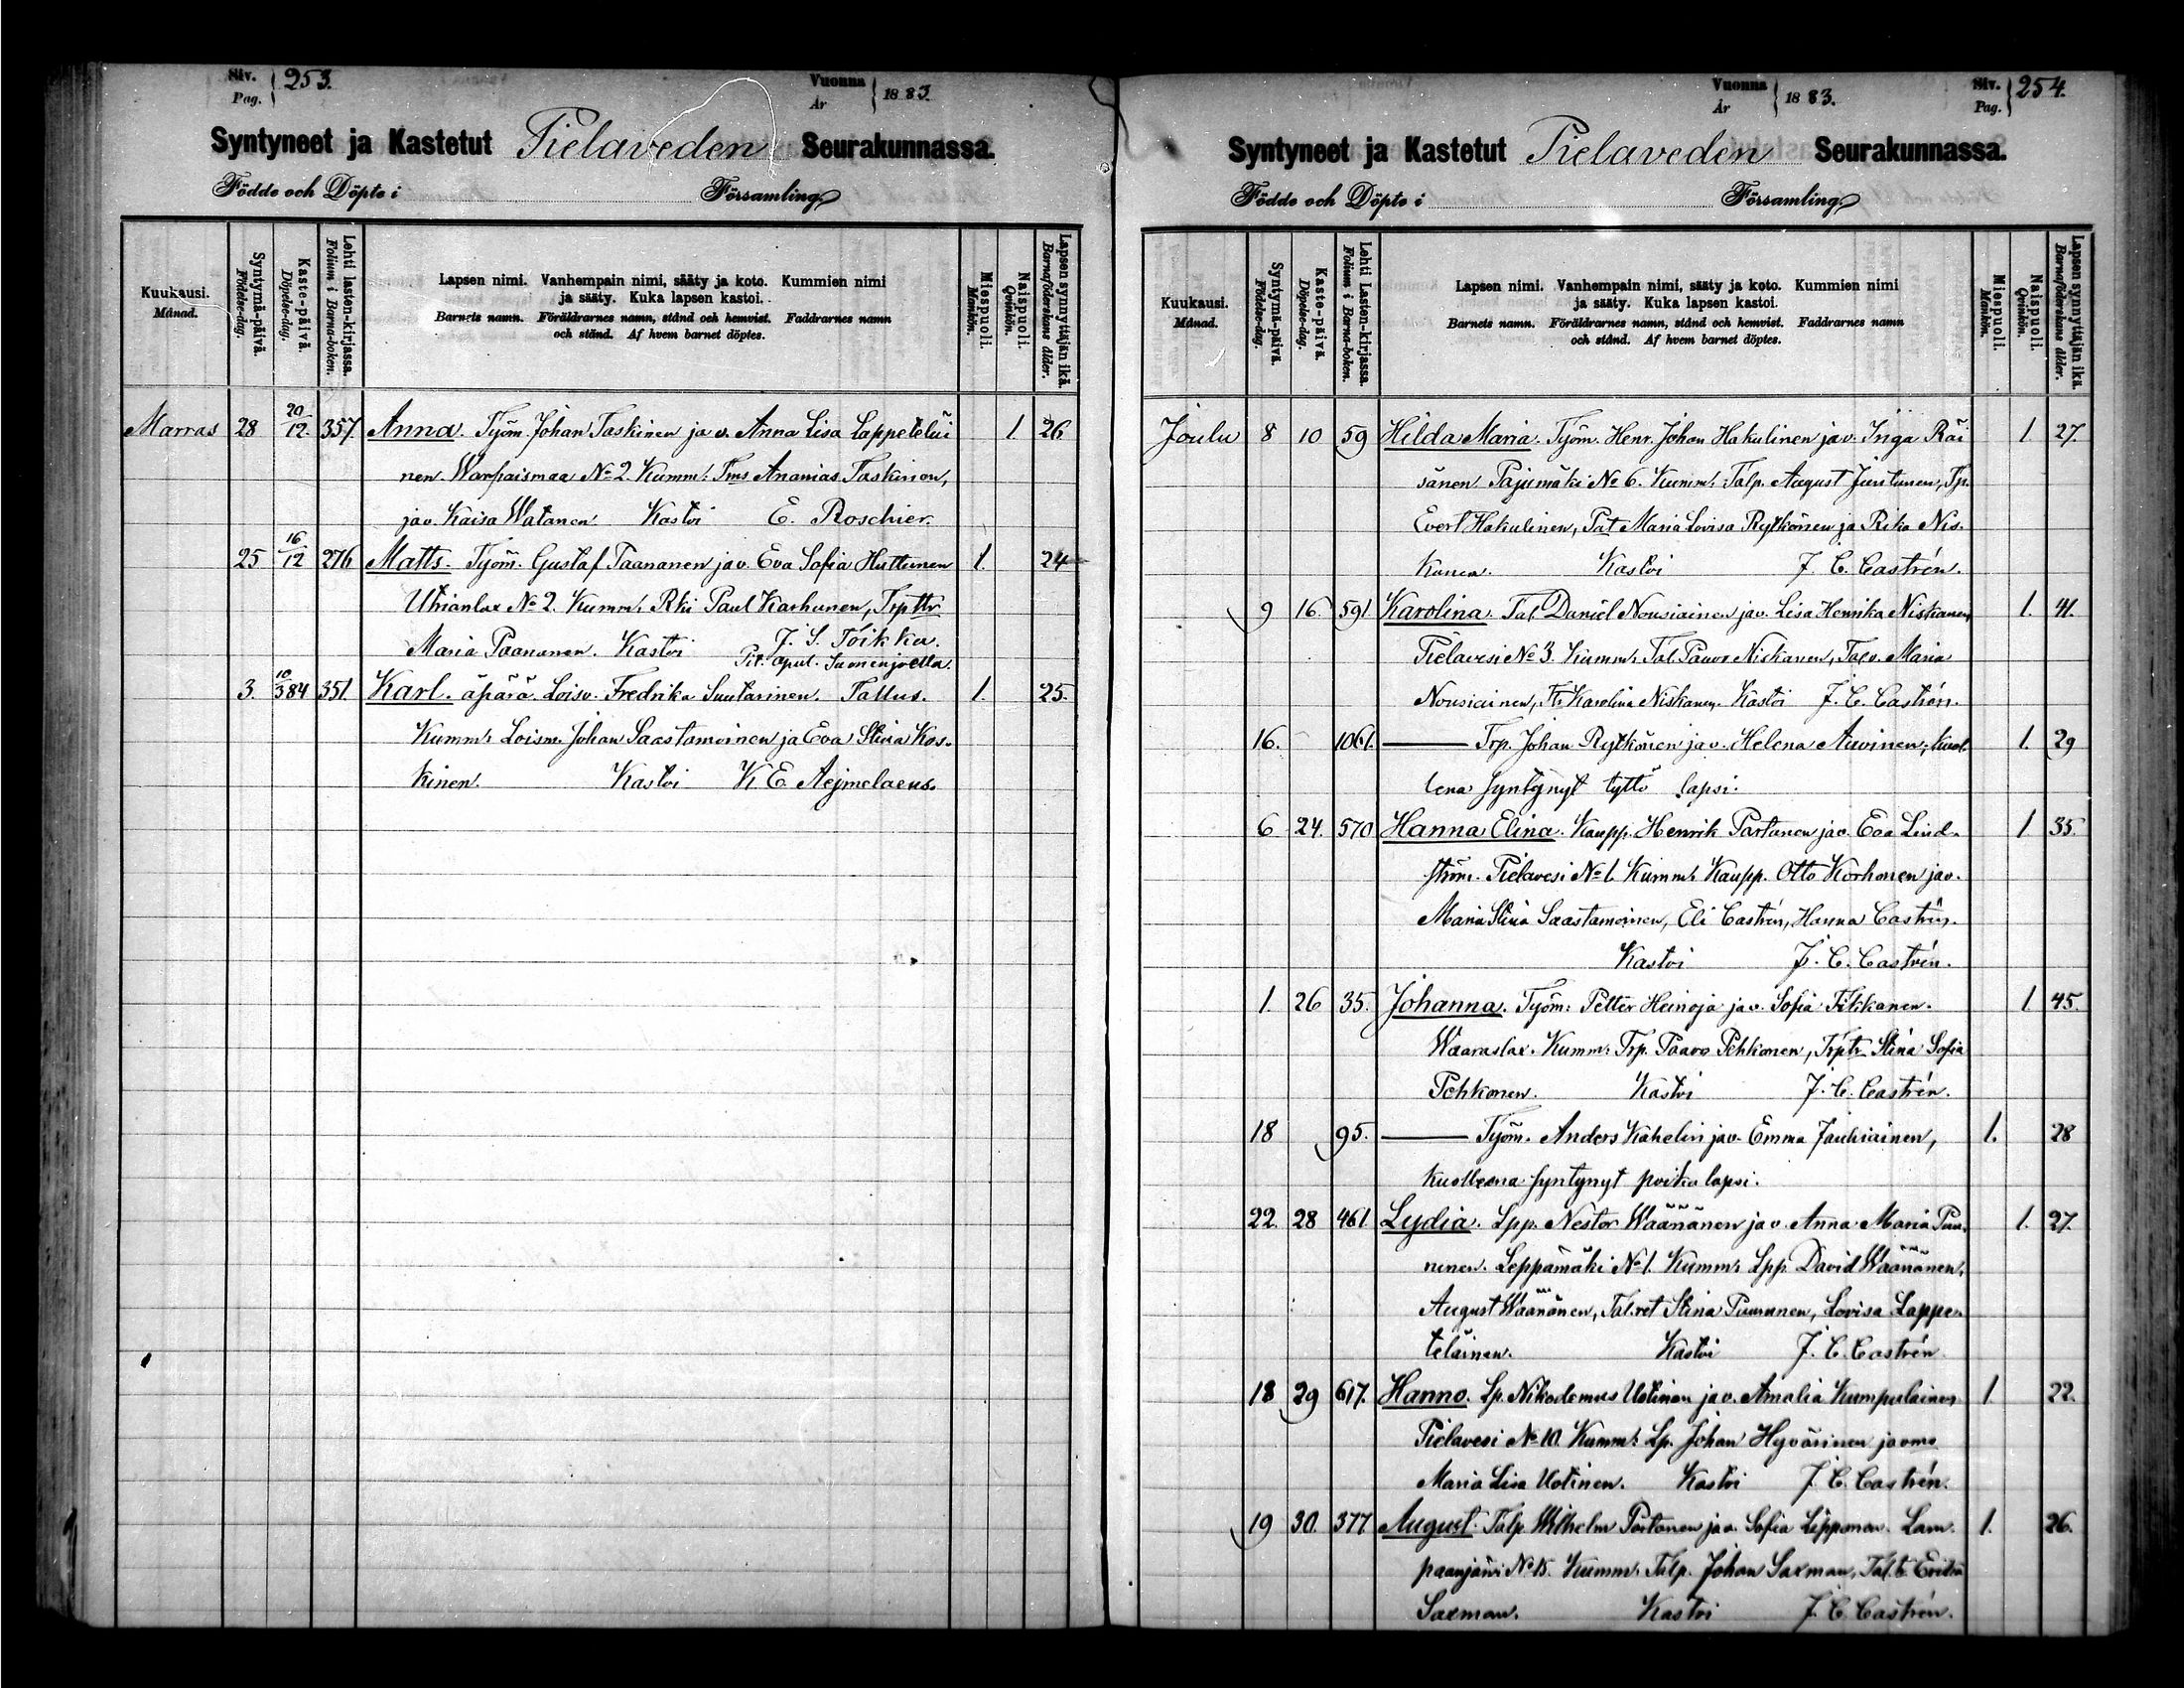 Siv. Pag. 253. Vuonna År 1883.
Syntyneet ja Kastetut Pielaveden Seurakunnassa.
Födde och Döpte i Församling
Kuukausi. Månad. Syntymä-päivä. Födelse-dag. Kaste-päivä. Döpelse-dag. Lehti lasten-kirjassa. Folium i Barna-boken. Lapsen nimi. Vanhempain nimi, sääty ja koto. Kummien nimi ja sääty. Kuka lapsen kastoi. Barnets namn. Föräldrarnes namn, stånd och hemvist. Faddrarnes namn och stånd. Af hvem barnet döptes. Miespuoli. Mankön. Naispuoli. Qvinkön. Lapsen synnyttäjän ikä. Barnaföderskans ålder.
Marras 28 20/12. 357. Anna. Työm. Johan Taskinen ja v. Anna Lisa Lappeteläi 1. 26
nen. Warpaismaa No 2. Kumm: Tms Ananias Taskinen,
ja v. Kaisa Watanen Kastoi E. Roschier.
25 16/12 276 Matts. Työm. Gustaf Paananen ja v. Eva Sofia Huttunen 1. 24
Utrianlax No 2. Kumm: Rki Paul Karhunen, Trpttr
Maria Paananen. Kastoi J. S. Toikka.
Pit. apul. Suoninjoella.
3. 10/3 84 351. Karl. äpärä. Loisv. Fredrika Suutarinen. Tallus. 1. 25.
Kumm: Loism. Johan Saastamoinen ja Eva Stina Kos-
kinen. Kastoi K. E. Aejmelaeus.
Vuonna År 1883. Siv. Pag. 254.
Syntyneet ja Kastetut Pielaveden Seurakunnassa.
Födde och Döpte i Församling
Kuukausi. Månad. Syntymä-päivä. Födelse-dag. Kaste-päivä. Döpelse-dag. Lehti Lasten-kirjassa. Folium i Barna-boken. Lapsen nimi. Vanhempain nimi, sääty ja koto. Kummien nimi ja sääty. Kuka lapsen kastoi. Barnets namn. Föräldrarnes namn, stånd och hemvist. Faddrarnes namn och stånd. Af hvem barnet döptes. Miespuoli. Mankön. Naispuoli. Qvinkön. Lapsen synnyttäjän ikä. Barnaföderskans ålder.
Joulu 8 10 59 Hilda Maria. Työm. Henr. Johan Hakulinen ja v. Inga Räi 1. 27.
sänen Pajumäki No 6. Kumm: Talp. August Juntunen, Tp.
Evert Hakulinen, Pat Maria Lovisa Rytkönen ja Rika Nis-
kanen. Kastoi J. C. Castrén.
9 16. 591. Karolina. Tal. Daniel Nousiainen ja v. Lisa Henrika Niskanen, 1. 41.
Pielavesi No 3. Kumm: Tal. Paavo Niskanen, Tal v. Maria
Nousiainen, Tr. Karolina Niskanen. Kastoi J. C. Castrén.
16. 1061. Trp. Johan Rytkönen ja v. Helena Auvinen, kuol- 1. 29
lena syntynyt tyttö lapsi.
6 24. 570 Hanna Elina. Kaupp. Henrik Partanen ja v. Eva Lind- 1. 35.
ström. Pielavesi No 1. Kumm: Kaupp. Otto Korhonen ja v.
Maria Stina Saastamoinen, Eli Castrén, Hanna Castrén.
Kastoi J. C. Castrén.
1. 26 35. Johanna. Työm: Petter Heinoja ja v. Sofia Tikkanen. 1. 45.
Waaraslax. Kumm: Trp. Paavo Pehkonen, Trptr Stina Sofia
Pehkonen. Kastoi J. C. Castrén.
18 95. Työm. Anders Kahelin ja v. Emma Jauhiainen, 1. 28
kuolleena syntynyt poika lapsi.
22. 28 461. Lydia. Lpp. Nestor Wäänänen ja v. Anna Maria Puu- 1. 27.
nunen. Leppämäki No 1. Kumm: Lpp. David Wäänänen,
August Wäänänen, Tal:ret Stina Puununen, Lovisa Lappe-
teläinen. Kastoi J. C. Castrén
18 29 617. Hanno. Lp. Nikodemus Uotinen ja v. Amalia Kumpulainen 1. 22.
Pielavesi No 10. Kumm: Lp. Johan Hyvärinen ja vmo
Maria Lisa Uotinen. Kastoi J. C. Castrén.
19 30. 377 August. Talp. Wilhelm Partanen ja v. Sofia Lipponen. Lam- 1. 26.
paanjärvi No 15. Kumm. Talp. Johan Saxman, Tal.t. Erika
Saxman. Kastoi J. C. Castrén.